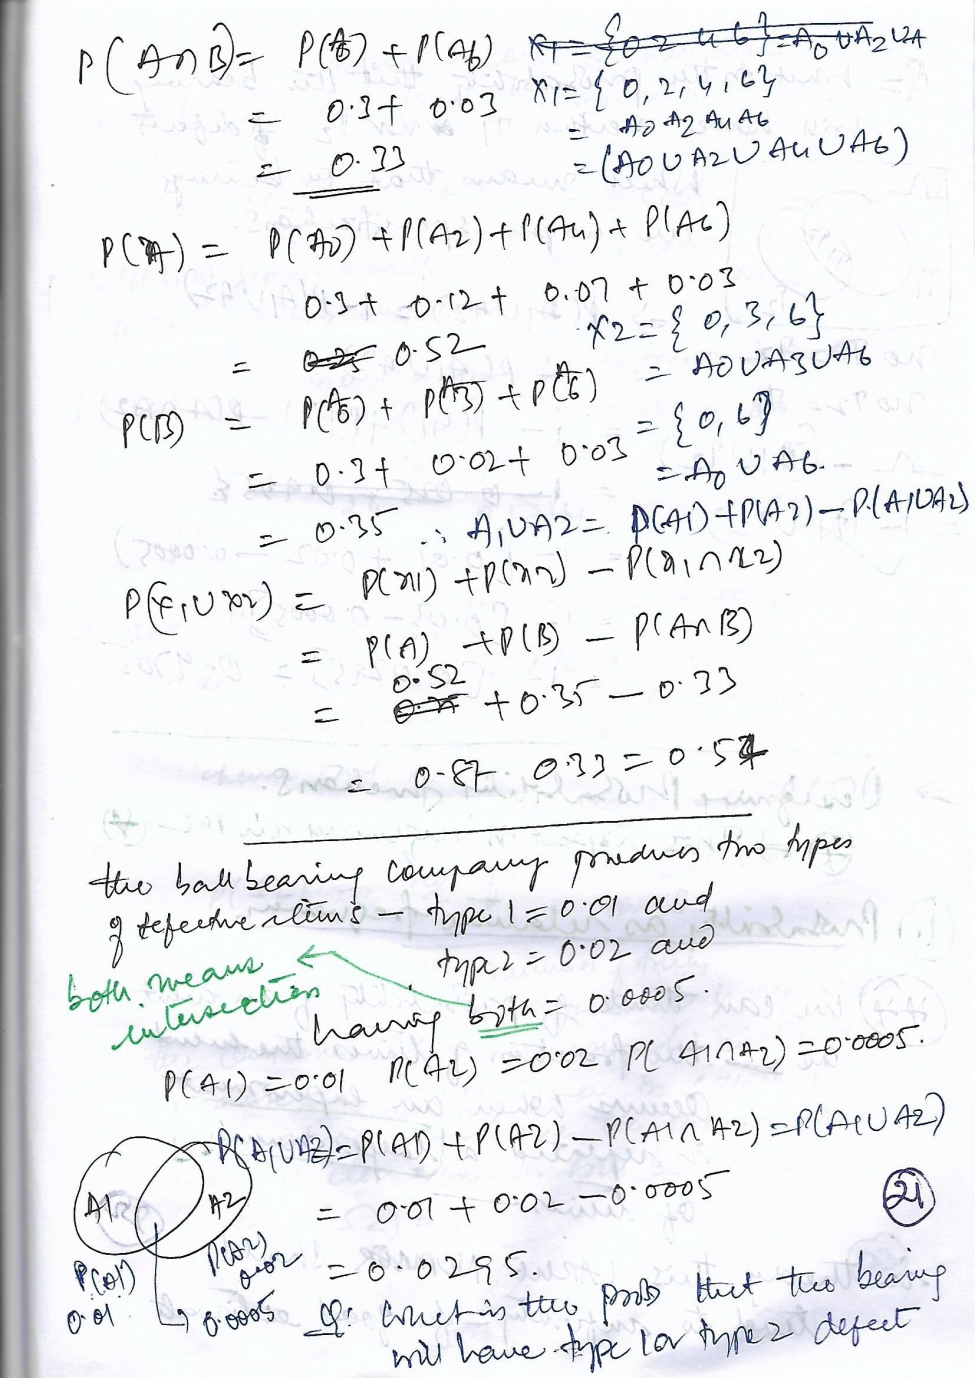 P(A∩B) = P(A0) + P(A6)
= 0.3 + 0.03
= 0.33
X1 = {0 2 4 6} = A0 ∪ A2 ∪ A
X1 = { 0, 2, 4, 6}
= A0 A2 A4 A6
= (A0 ∪ A2 ∪ A4 ∪ A6)
P(A) = P(A0) + P(A2) + P(A4) + P(A6)
0.3 + 0.12 + 0.07 + 0.03
= 0.52
X2 = { 0, 3, 6}
= A0 ∪ A3 ∪ A6
P(B) = P(A0) + P(A3) + P(A6)
= {0, 6}
= 0.3 + 0.02 + 0.03
= A0 ∪ A6.
= 0.35 ∴ A1∪A2 = P(A1) + P(A2) – P(A1∪A2)
P(X1∪X2) = P(x1) + P(x2) – P(x1∩x2)
= P(A) + P(B) – P(A∩B)
0.52
= + 0.35 – 0.33
= 0.87 0.33 = 0.54
the ball bearing company produces two types
of defective items – type 1 = 0.01 and
type 2 = 0.02 and
both means
intersection
having both = 0.0005.
P(A1) = 0.01 P(A2) = 0.02 P( A1∩A2) = 0.0005.
P(A1∪A2) = P(A1) + P(A2) – P(A1∩A2) = P(A1∪A2)
A1 A2
= 0.01 + 0.02 – 0.0005
21
P(A1)
0.01
P(A2)
0.02
= 0.0295.
0.0005
Q: What is the prob that the bearing
will have type 1 or type 2 defect